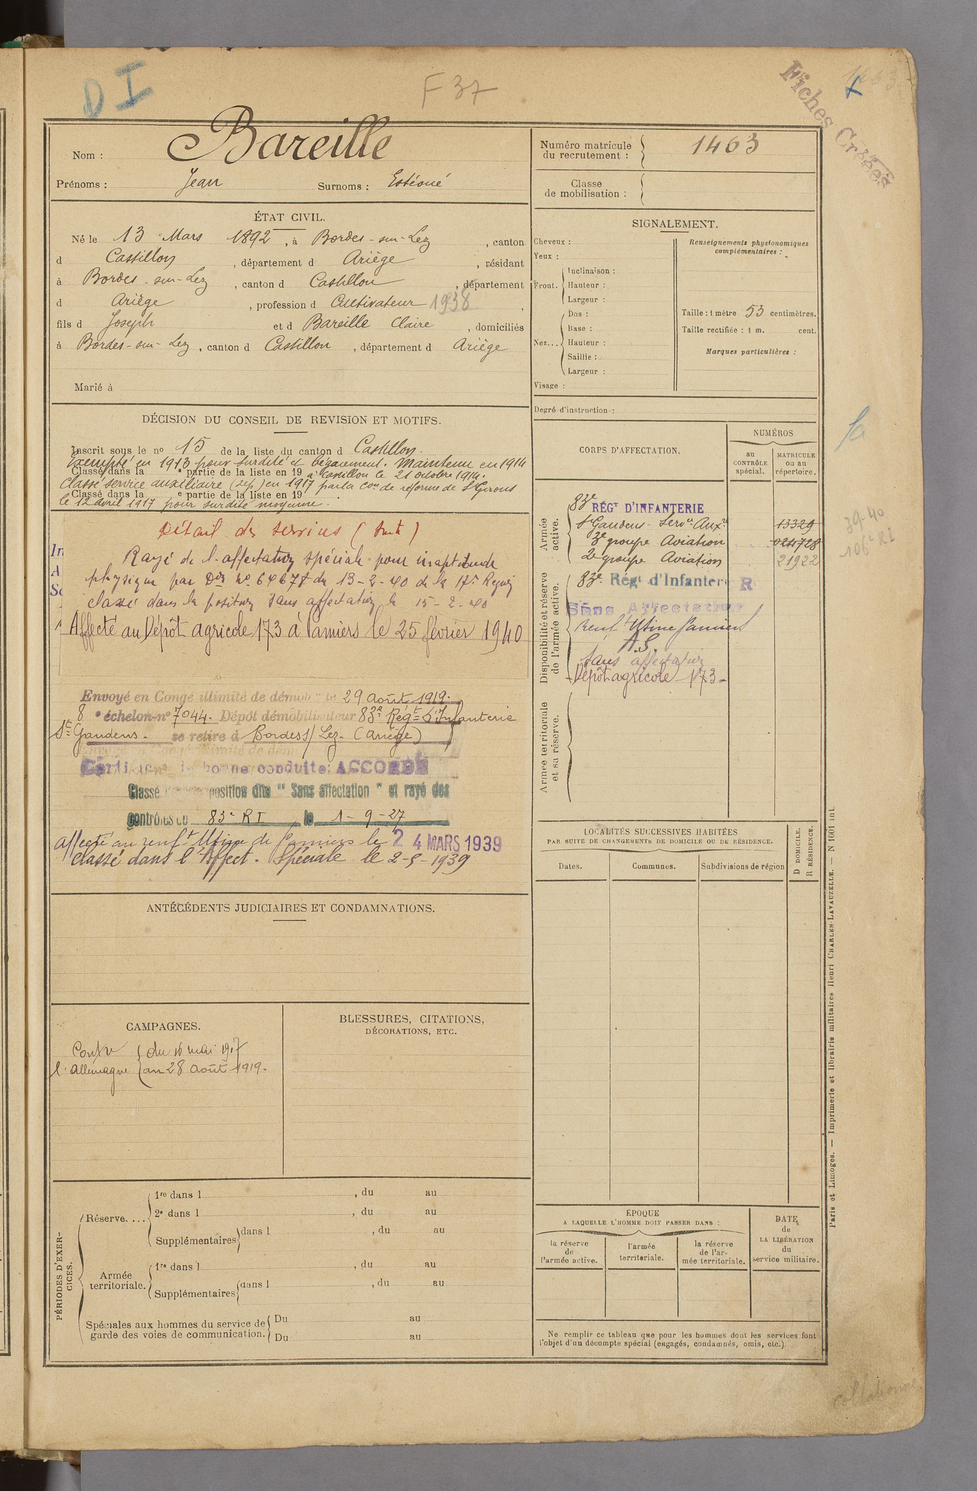 D I
F 37
Fiches Créées
Nom : Bareille
Prénoms : Jean Surnoms : Estéoué
Numéro matricule du recrutement : 1463
Classe de mobilisation :
ÉTAT CIVIL.
Né le 13 Mars 1892, à Bordes-sur-Lez, canton
d Castillon, département d Ariège, résidant
à Bordes-sur-Lez, canton d Castillon, département
d Ariège, profession d Cultivateur 1938,
fils d Joseph et d Bareille Claire, domiciliés
à Bordes-sur-Lez, canton d Castillon, département d Ariège
Marié à
SIGNALEMENT.
Cheveux :
Yeux :
Front. Inclinaison :
Hauteur :
Largeur :
Nez... Dos :
Base :
Hauteur :
Saillie :
Largeur :
Visage :
Renseignements physionomiques complémentaires :
Taille : 1 mètre 53 centimètres.
Taille rectifiée : 1 m. cent.
Marques particulières :
Degré d'instruction :
DÉCISION DU CONSEIL DE REVISION ET MOTIFS.
Inscrit sous le no 15 de la liste du canton d Castillon.
Exempté en 1913 pour surdité et bégaiement. Maintenu en 1914
Classé dans la e partie de la liste en 19 à Castillon le 21 octobre 1914.
Classé service auxiliaire en 1917 par la Con de réforme de St Girons
Classé dans la e partie de la liste en 19
le 12 avril 1917 pour surdité moyenne
Détail des services (suite)
Rayé de l'affectation spéciale pour inaptitude
physique par Don No 64677 du 13-2-40 de la 17e Région
classé dans la position sans affectation le 15-2-40
Affecté au Dépôt agricole 173 à Pamiers le 25 février 1940
Envoyé en Congé illimité de démob le 29 Août 1919.
8 e échelon no 7044. Dépôt démobilisateur 83e Régt d'Infanterie
St Gaudens. se retire à Bordes s/ Lez. (Ariège)
Certificat de bonne conduite: ACCORDÉ
Classé position dite "Sans affectation" et rayé des
contrôles du 83e RI le 1-9-27
affecté au renft Usine de Pamiers le 24 MARS 1939
Classé dans l'Affect. Spéciale le 2-9-1939
ANTÉCÉDENTS JUDICIAIRES ET CONDAMNATIONS.
CAMPAGNES.
Contre l'Allemagne du 16 mai 1917
au 28 Août 1919.
BLESSURES, CITATIONS,
DÉCORATIONS, ETC.
PÉRIODES D'EXERCICES.
Réserve.... 1re dans l , du au
2e dans l , du au
Supplémentaires dans l , du au
Armée territoriale. 1re dans l , du au
Supplémentaires dans l , du au
Spéciales aux hommes du service de garde des voies de communication. Du au
Du au
CORPS D'AFFECTATION.
NUMÉROS
AU CONTRÔLE spécial.
MATRICULE ou au répertoire.
Armée active.
83e RÉGt D'INFANTERIE
St Gaudens Serv. Auxre 13329
3e groupe Aviation
2e groupe Aviation 21922
Disponibilité et réserve de l'armée active.
83e Régt d'Infanterie R
Sans Affectation
Renft Usine Pamiers
A.S.
Sans affectation
Dépôt agricole 173
Armée territoriale et sa réserve.
39-40
106e RI
LOCALITÉS SUCCESSIVES HABITÉES
PAR SUITE DE CHANGEMENTS DE DOMICILE OU DE RÉSIDENCE.
Dates.
Communes.
Subdivisions de région
D DOMICILE.
R RÉSIDENCE.
ÉPOQUE
A LAQUELLE L'HOMME DOIT PASSER DANS :
la réserve de l'armée active.
l'armée territoriale.
la réserve de l'armée territoriale.
DATE de LA LIBÉRATION du service militaire.
Ne remplir ce tableau que pour les hommes dont les services font
l'objet d'un décompte spécial (engagés, condamnés, omis, etc.)
Paris et Limoges. — Imprimerie et librairie militaires Henri CHARLES-LAVAUZELLE.
collationné